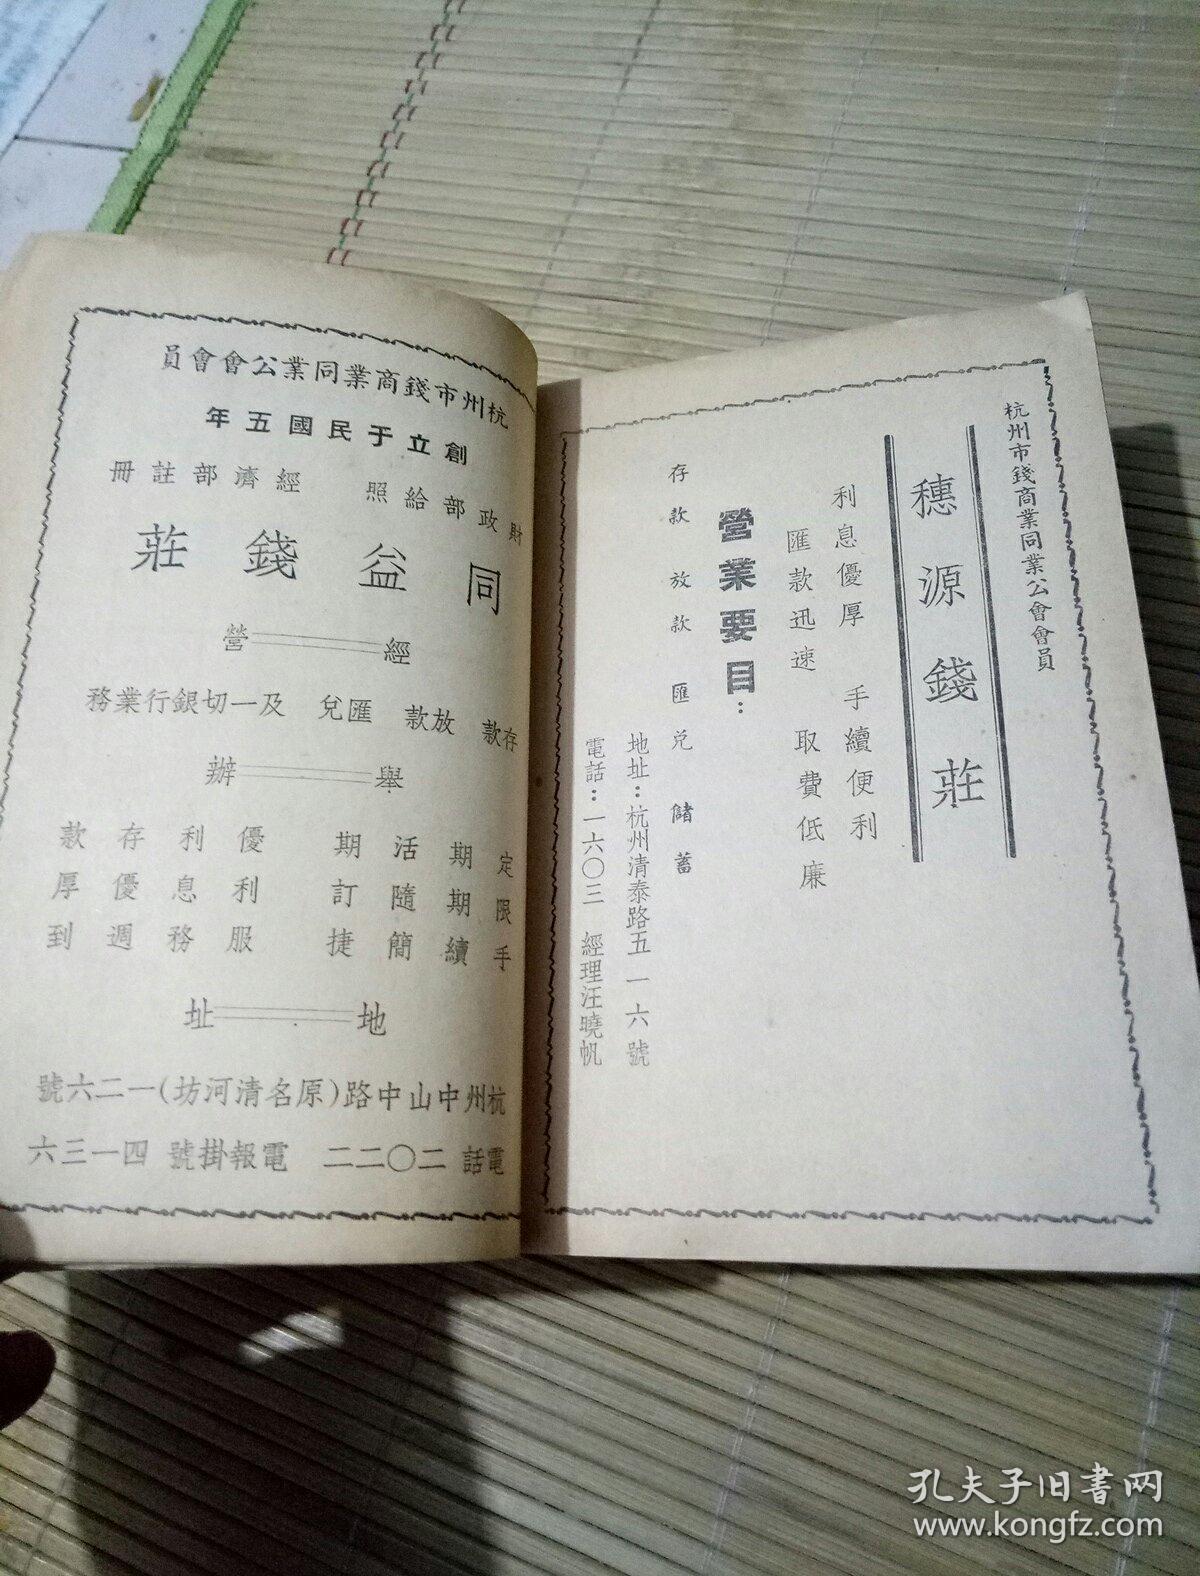 杭州市錢商業同業公會會員
穗源錢莊
利息優厚 手續便利
匯款迅速 取費低廉
營業要目：
存款 放款 匯兌 儲蓄
地址：杭州清泰路五一六號
電話：一六〇三 經理汪曉帆
杭州市錢商業同業公會會員
創立于民國五年
財政部給照 經濟部註冊
同益錢莊
經營
存款 放款 匯兌 及一切銀行業務
舉辦
定期活期 優利存款
限期隨訂 利息優厚
手續簡捷 服務週到
地址
杭州中山中路(原名清河坊)一二六號
電話 二〇二二 電報掛號 四一三六
孔夫子旧书网
www.kongfz.com